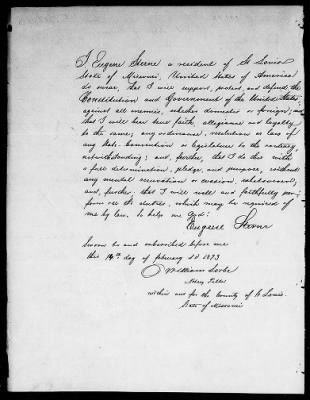 I Eugene Steene a resident of St Louis
State of Missouri, United States of America
do swear, that I will support, protect and defend the
Constitution and Government of the United States
against all enemies, whether domestic or foreign; and
that I will bear true faith, allegiance and loyalty
to the same, any ordinance, resolution or law of
any State Convention or legislature to the contrary
notwithstanding; and, further, that I do this with
a full determination, pledge, and purpose, without
any mental reservation or evasion, whatsoever;
and, further, that I will well and faithfully per-
form all the duties, which may be required of
me by law. So help me God:
Eugene
Sworn to and subscribed before me
this 14th day of february AD 1873
William
within and for the County of St Louis
State of Missouri